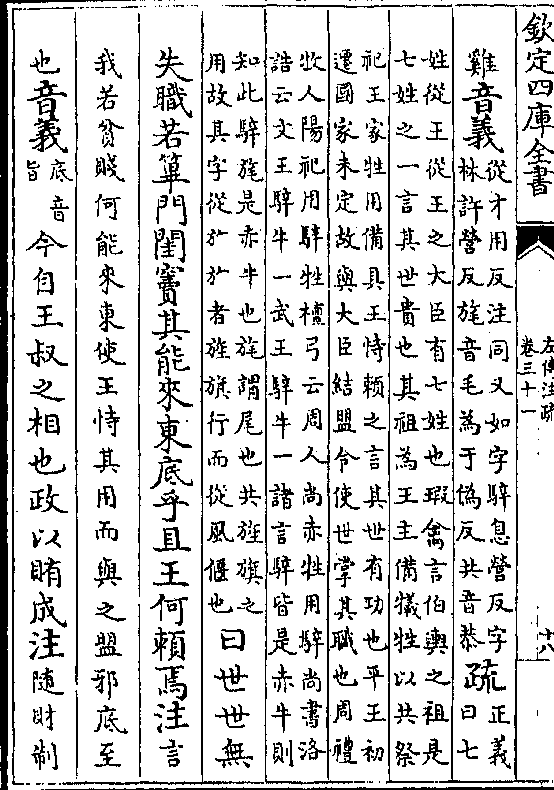 欽定四庫全書
左傳注疏
卷三十一
十八
雞音義從才用反注同又如字騂息營反字
林許營反旄音毛為于偽反共音恭疏正義
曰七
姓從王從王之大臣有七姓也瑕禽言伯輿之祖是
七姓之一言其世貴也其祖為王主備犧牲以共祭
祀王家牲用備具王恃賴之言其世有功也平王初
遷國家未定故與大臣結盟令使世掌其職也周禮
牧人陽祀用騂牲檀弓云周人尚赤牲用騂尚書洛
誥云文王騂牛一武王騂牛一諸言騂皆是赤牛則
知此騂旄是赤牛也旄謂尾也共旌旗之
用故其字從㫃㫃者旌旗行而從風偃也曰世世無
失職若箄門閨竇其能來東底乎且王何賴焉注言
我若貧賤何能來東使王恃其用而與之盟邪底至
也音義底音
旨今自王叔之相也政以賄成注隨財制